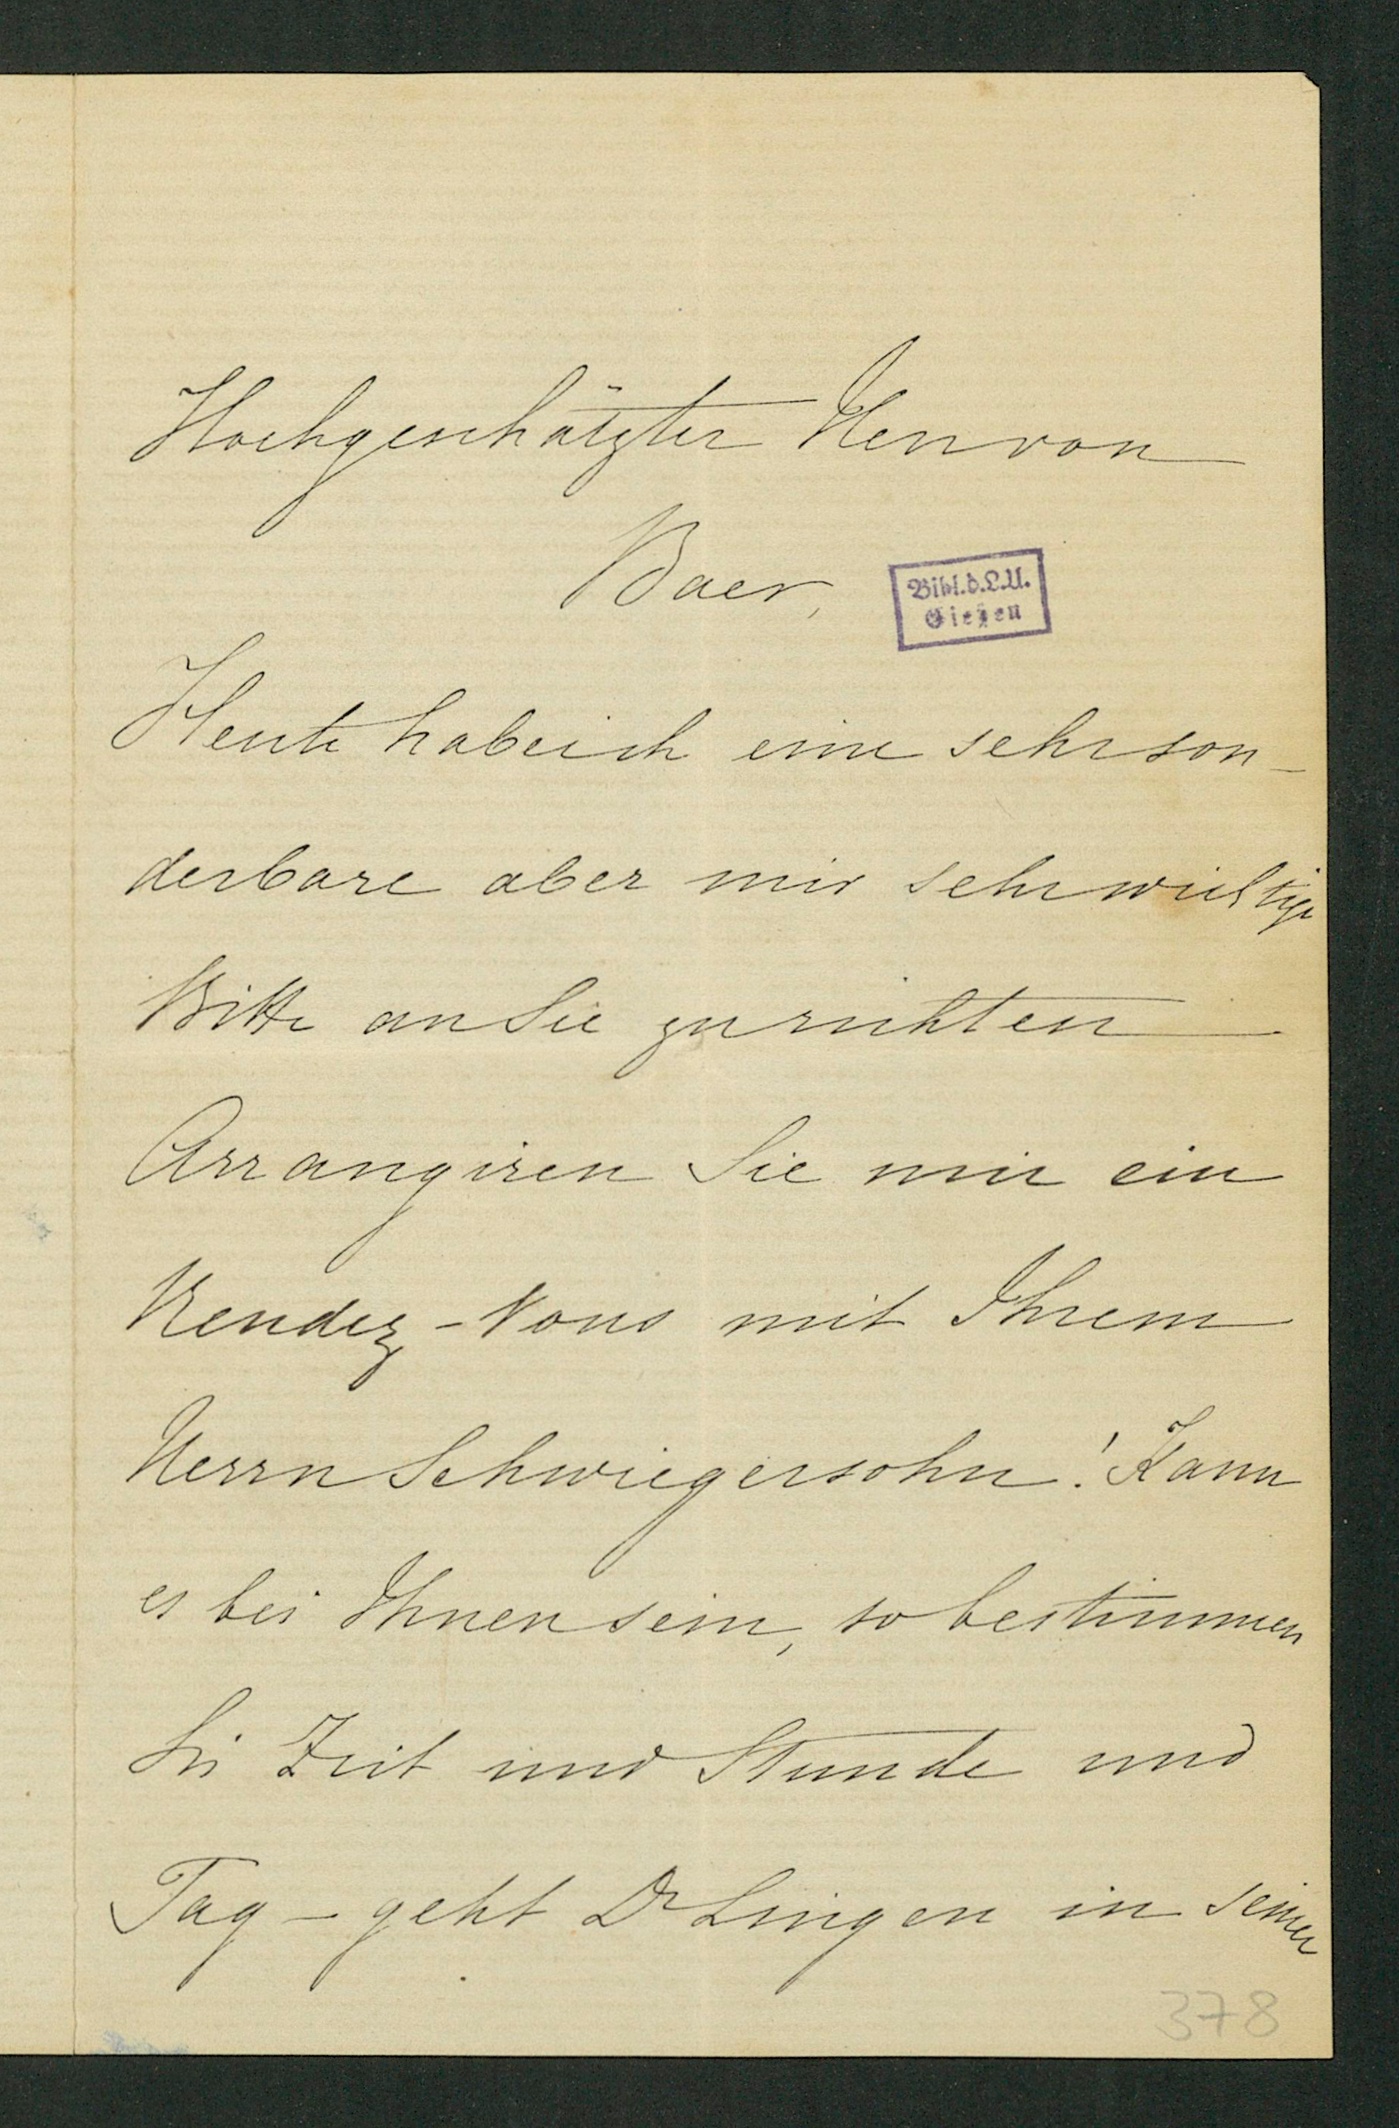 Hochgeschätzter Herr von
Baer,
Bibl.d.L.U.
Gießen
Heute habe ich eine sehr son-
derbare aber mir sehr wichtige
Bitte an Sie zu richten
Arrangiren Sie mir ein
Rendez-Vous mit Ihrem
Herrn Schwiegersohn! Kann
es bei Ihnen sein, so bestimmen
Sie Zeit und Stunde und
Tag – geht Dr Lingen in seiner
378